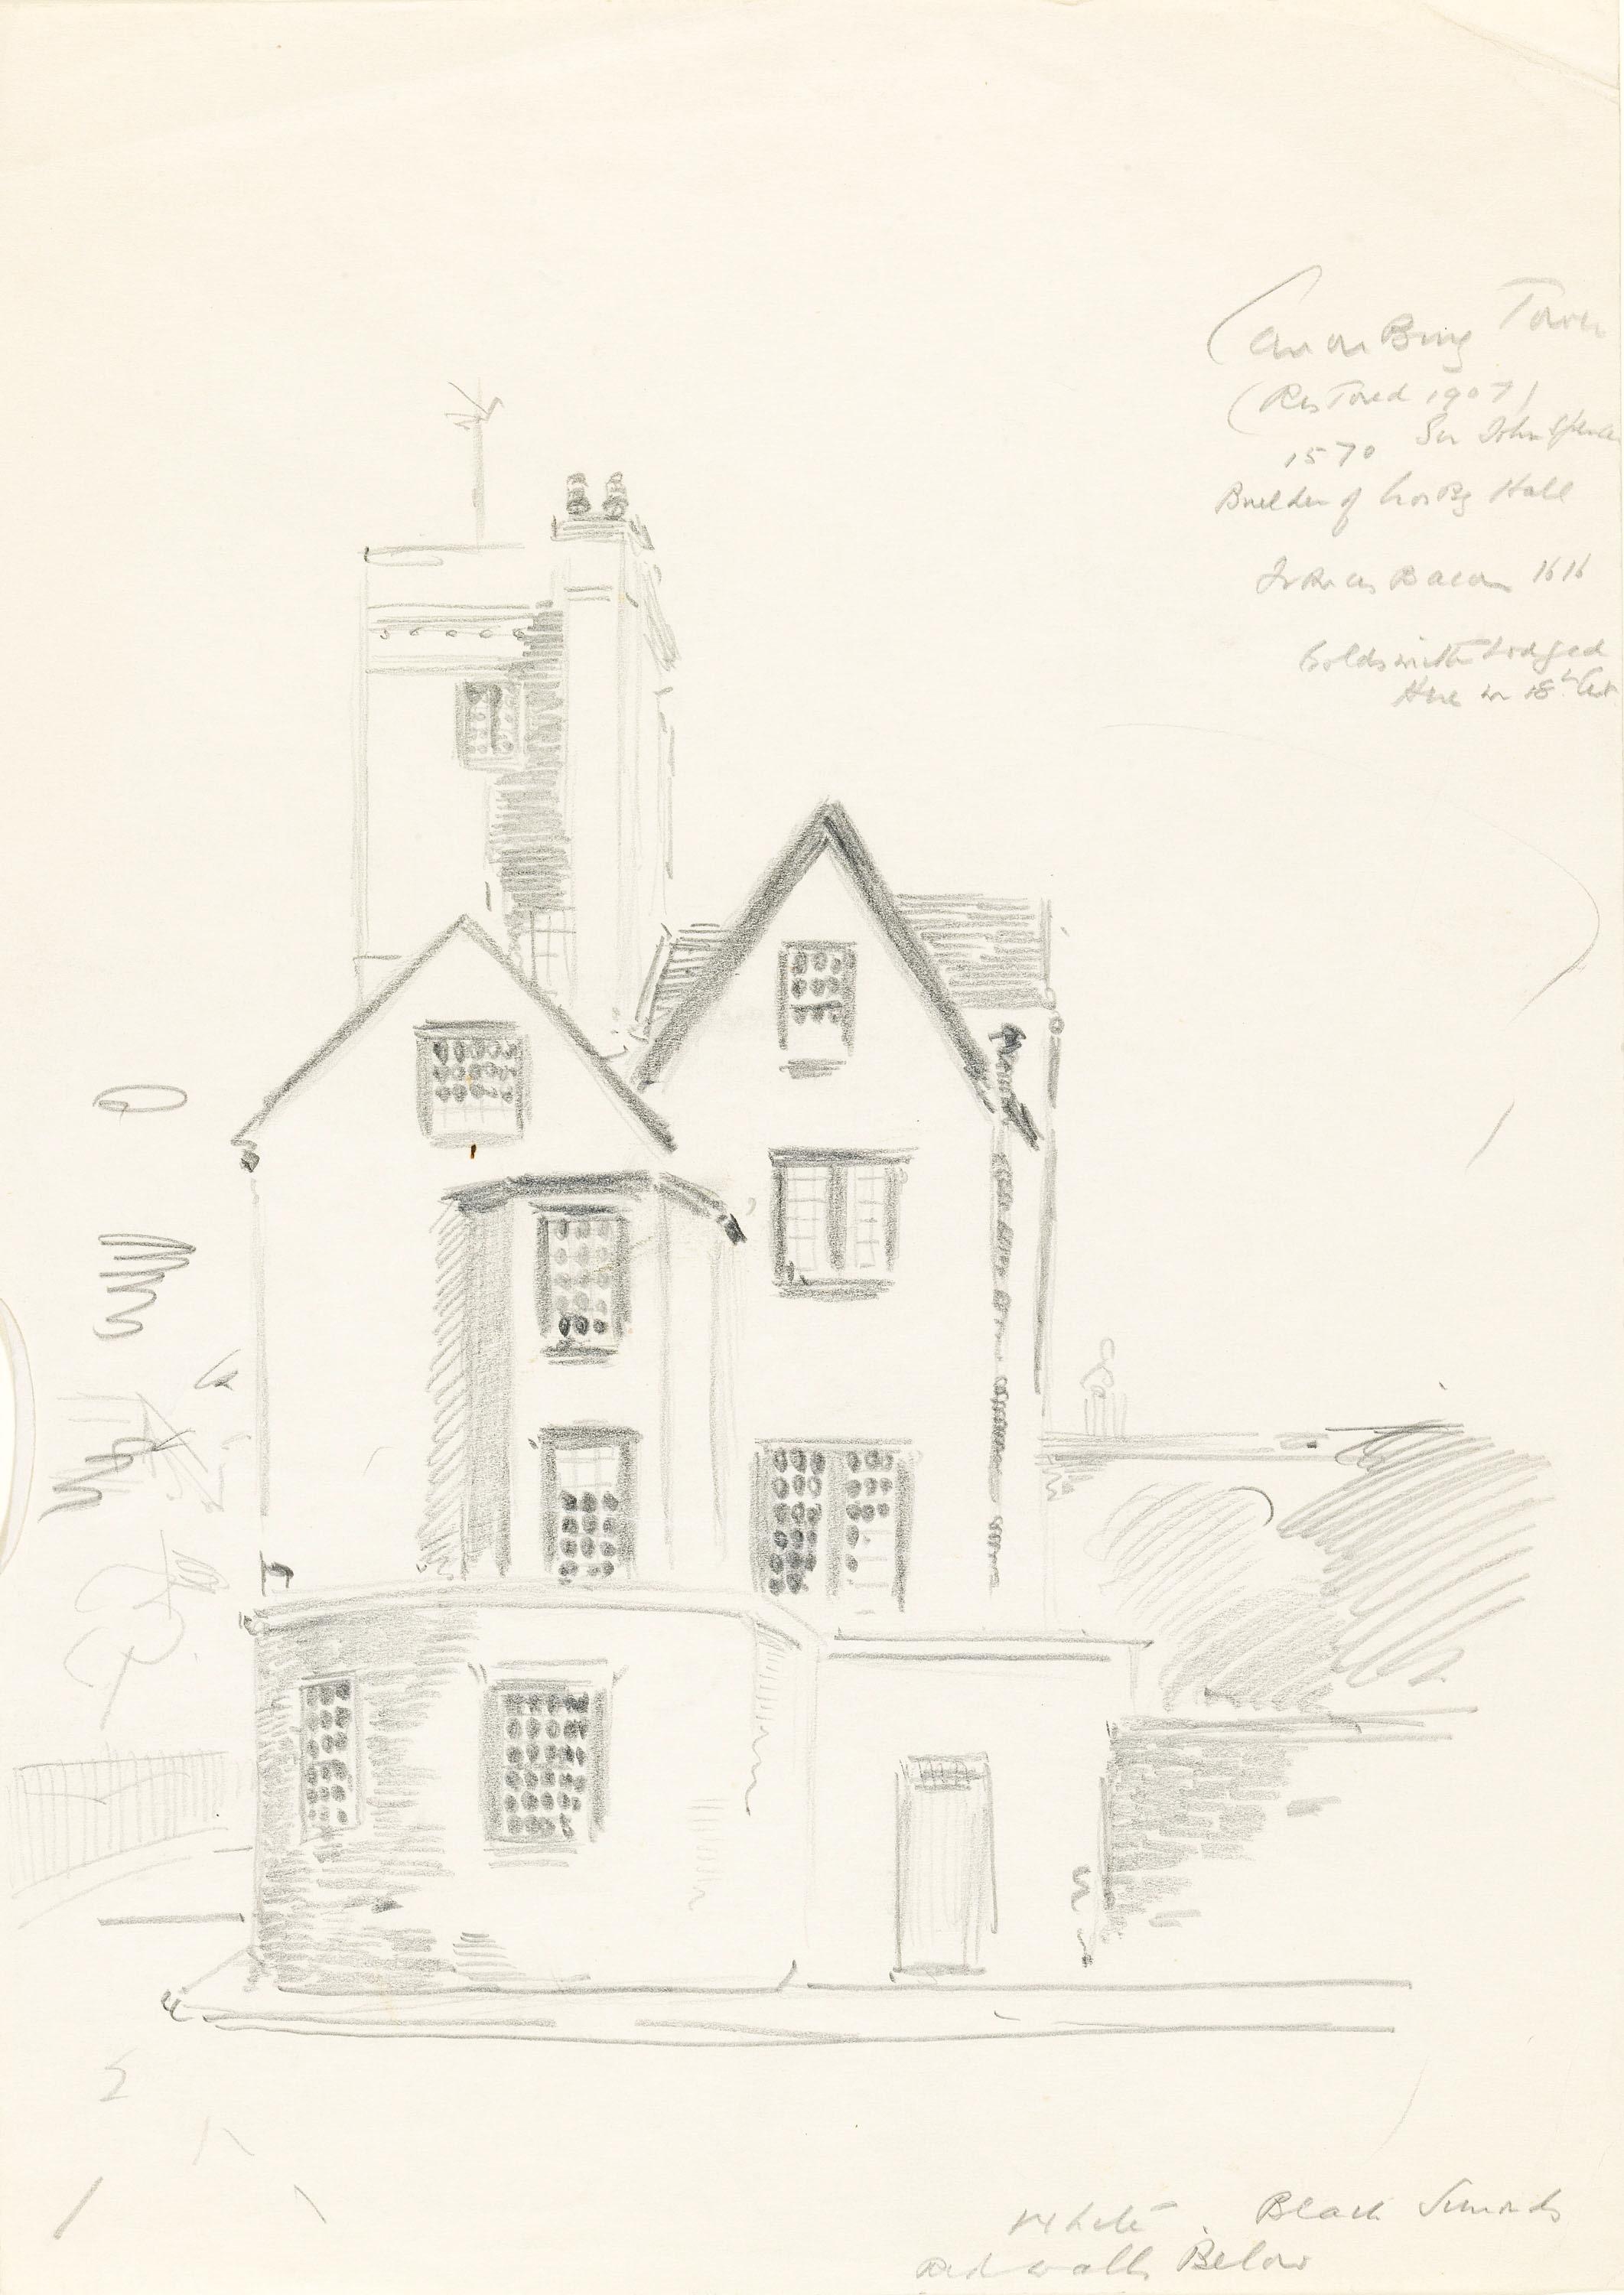 Canonbury Tower
(Restored 1907)
1570 Sir John Spencer
Builder of Crosby Hall
Francis Bacon 1616
Goldsmith Lodged
Here in 18th Cent
White. Black
Red walls Below